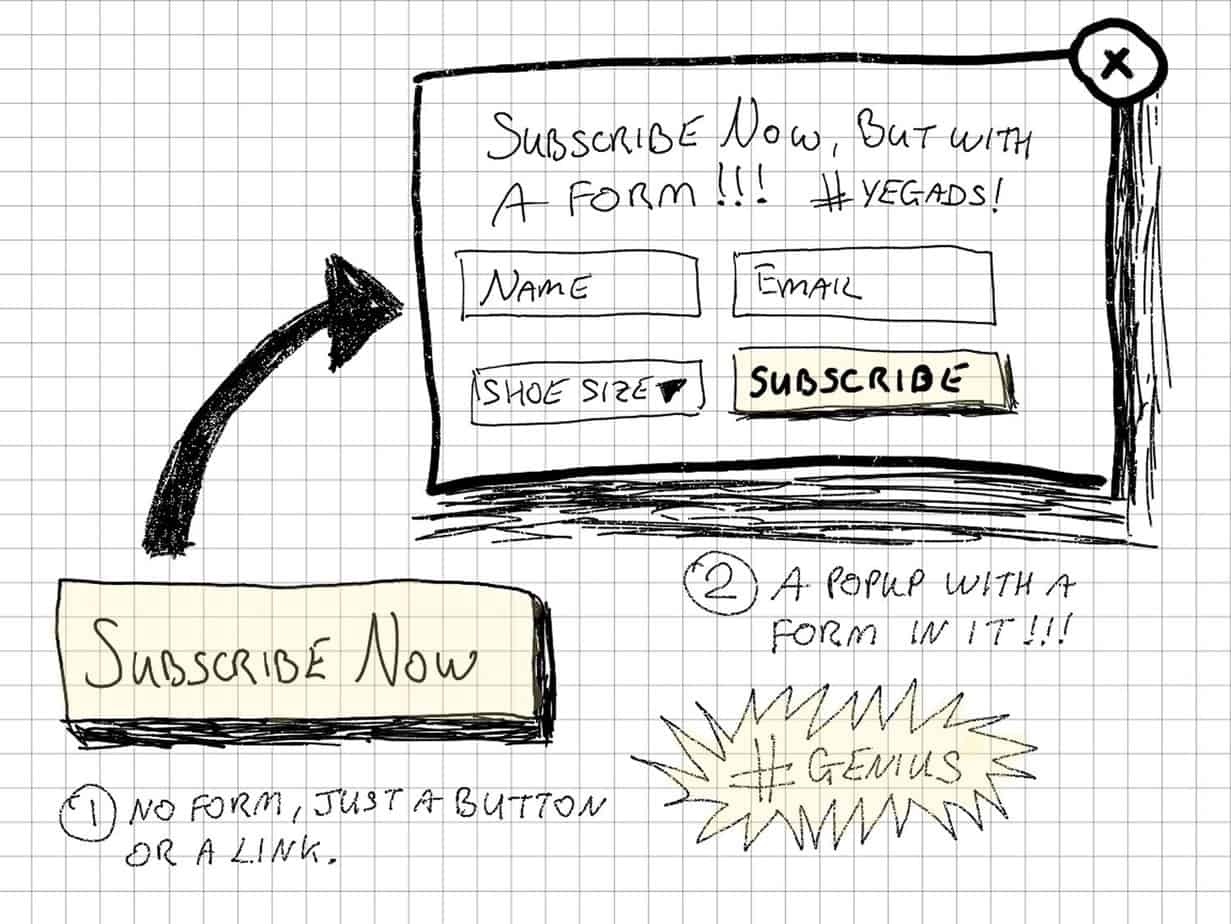 X
SUBSCRIBE NOW, BUT WITH
A FORM!!! #YEGADS!
NAME
EMAIL
SHOE SIZE
SUBSCRIBE
SUBSCRIBE NOW
① NO FORM, JUST A BUTTON
OR A LINK.
② A POPUP WITH A
FORM IN IT!!!
#GENIUS